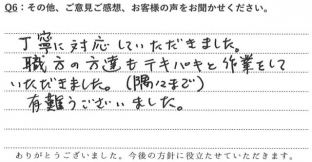 Q6：その他、ご意見ご感想、お客様の声をお聞かせください。
丁寧に対応していただきました。
職方の方達もテキパキと作業をして
いただきました。(隅々まで)
有難うございました。
ありがとうございました。今後の方針に役立たせていただきます。